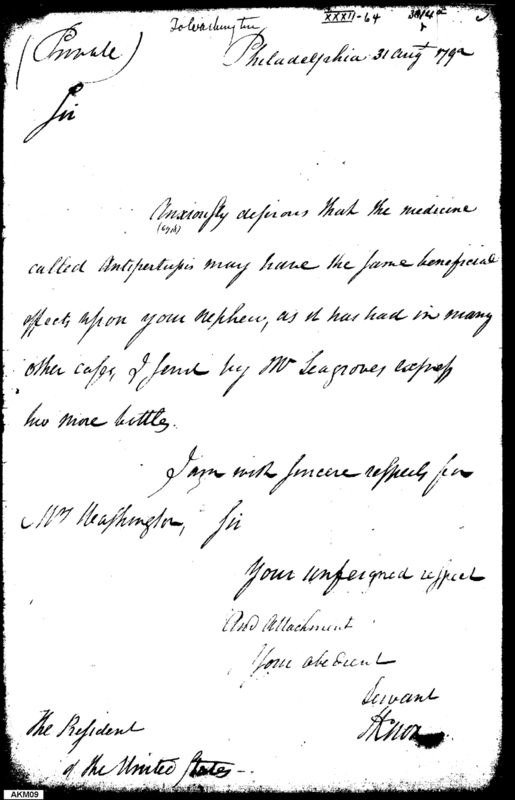 To Washington
XXXII-64
(Private)
Philadelphia 31 Augt 1792
Sir
Anxiously desirous that the medicine
called Antipertusis may have the same beneficial
effects upon your nephew, as it has had in many
other cases, I send by Mr Seagroves express
two more bottles.
I am with sincere respects for
Mrs Washington, Sir
Your unfeigned respect
And Attachment
Your obedient
Servant
HKnox
The President
of the United States
AKM09